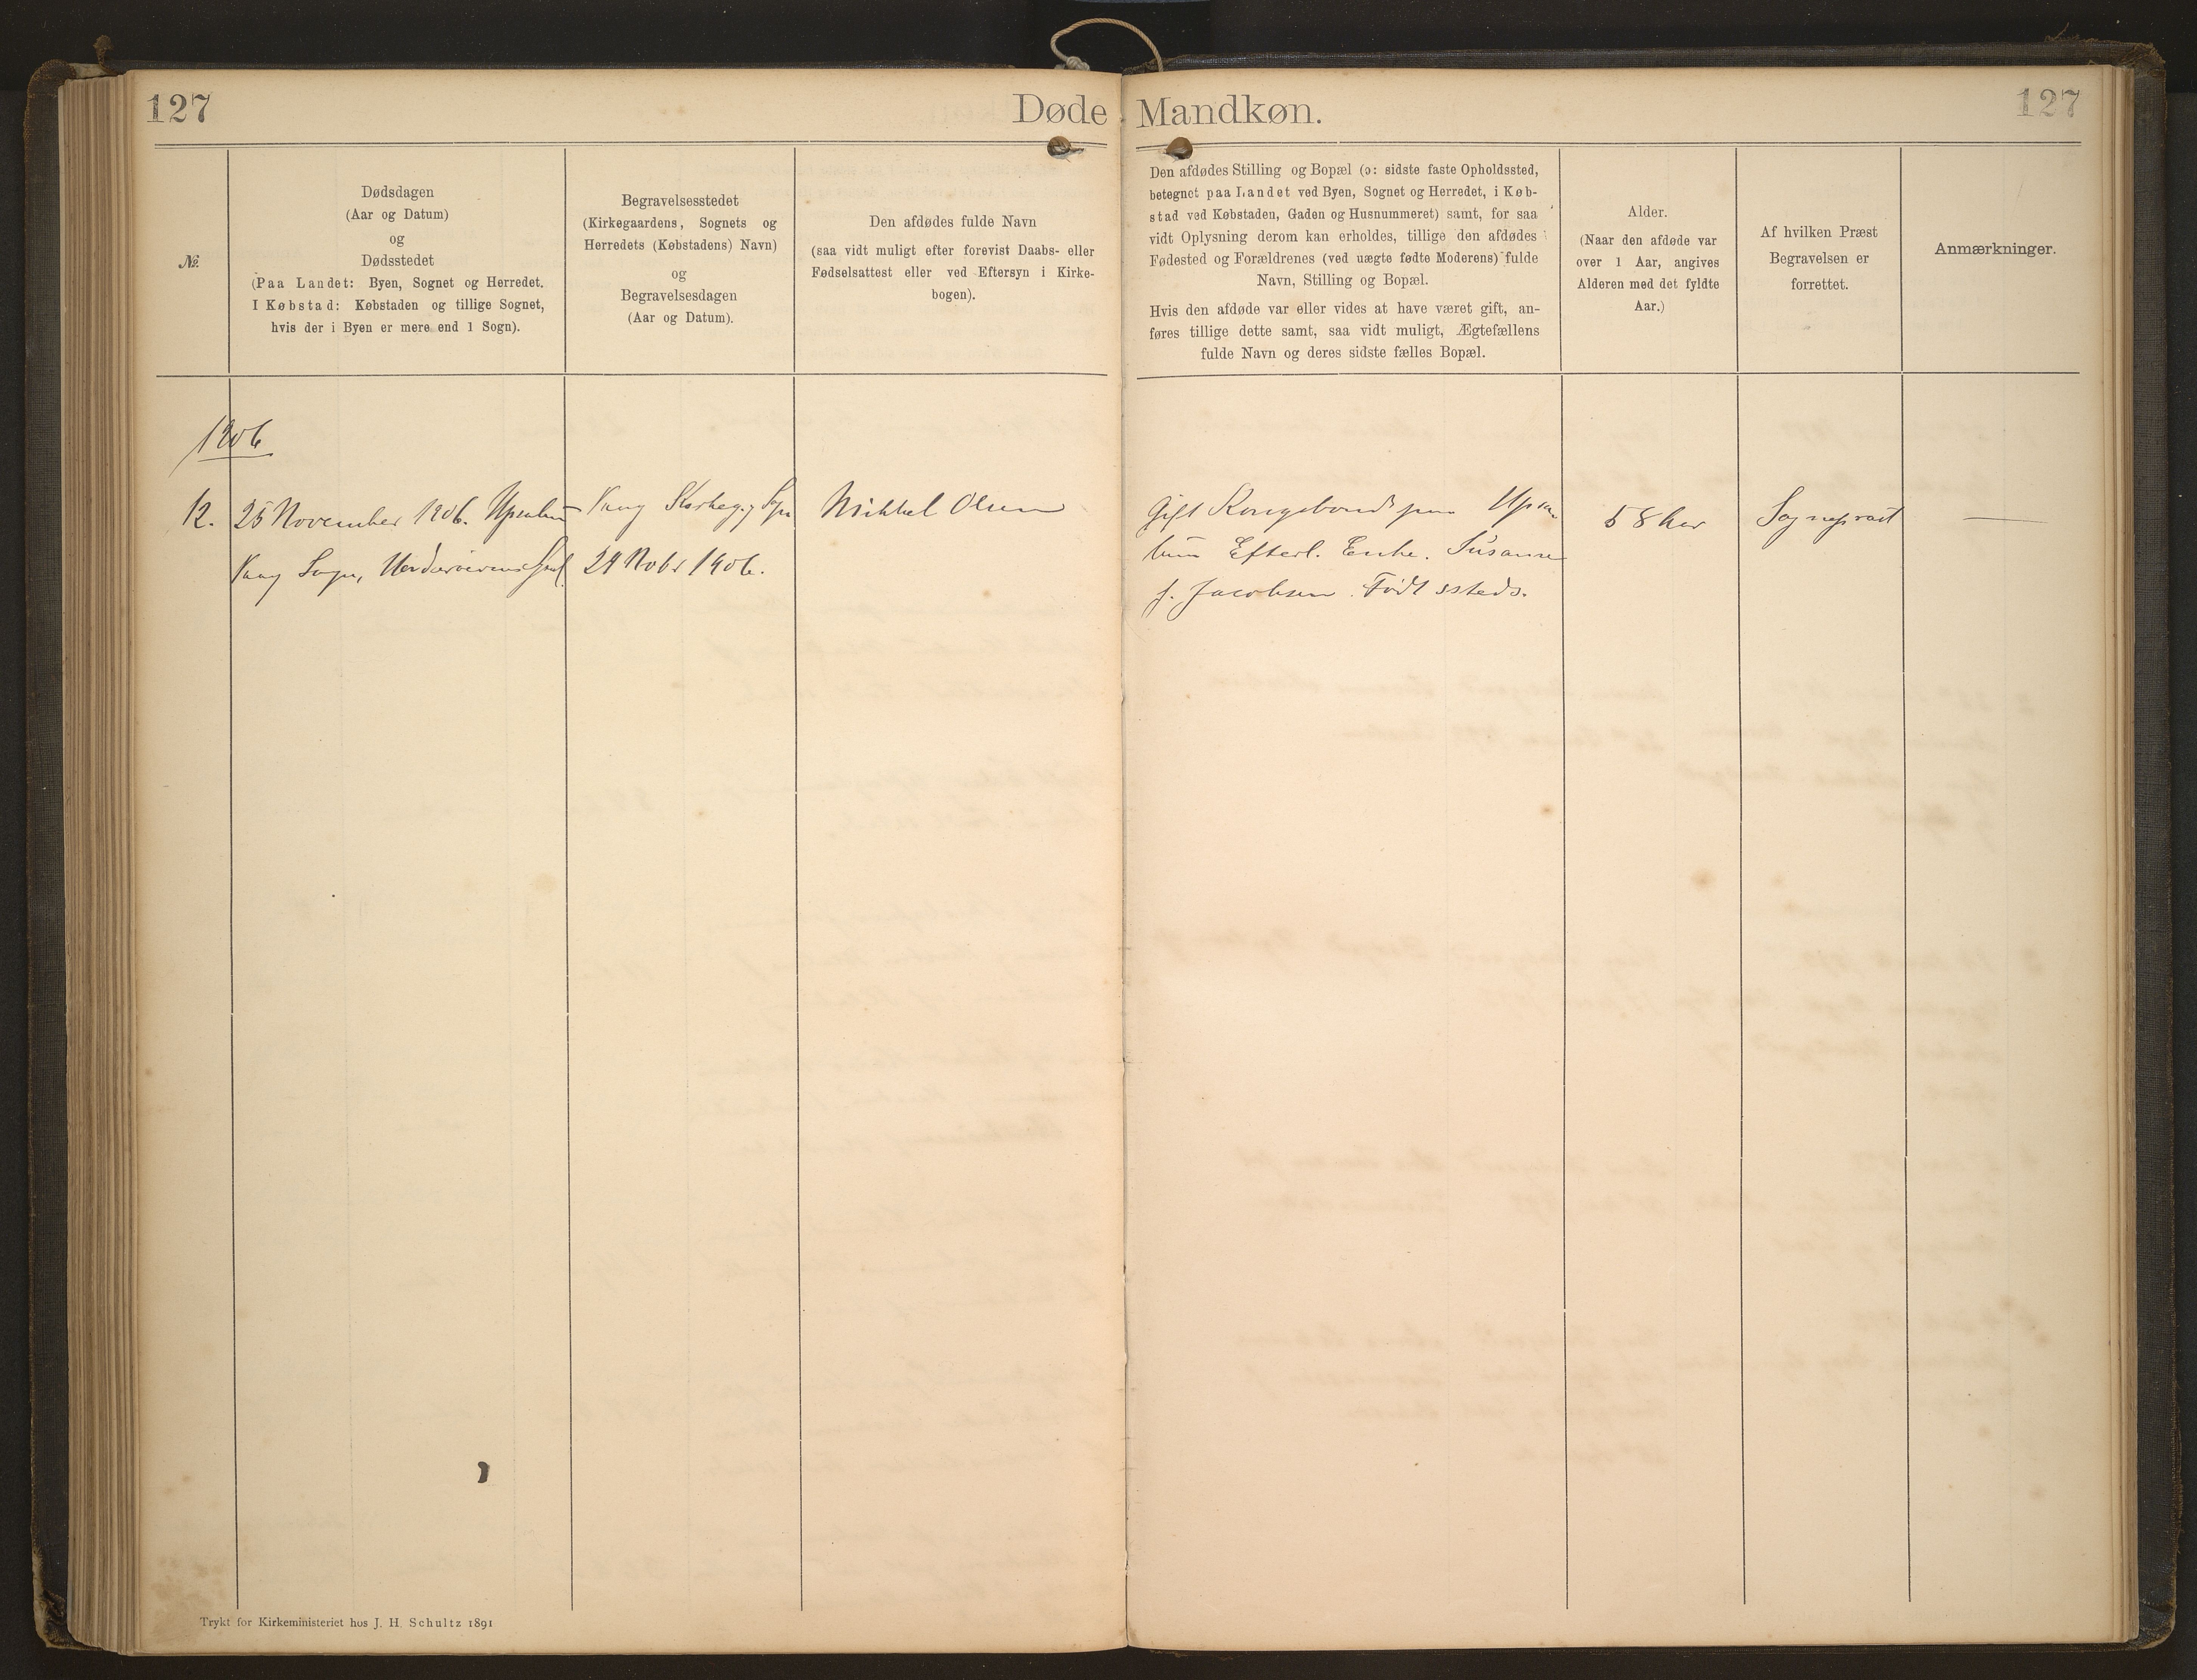 127
Døde
Mandkøn.
127
№
Dødsdagen
(Aar og Datum)
og
Dødsstedet
(Paa Landet: Byen, Sognet og Herredet.
I Købstad: Købstaden og tillige Sognet,
hvis der i Byen er mere end 1 Sogn).
Begravelsesstedet
(Kirkegaardens, Sognets og
Herredets (Købstadens) Navn)
og
Begravelsesdagen
(Aar og Datum).
Den afdødes fulde Navn
(saa vidt muligt efter forevist Daabs- eller
Fødselsattest eller ved Eftersyn i Kirke-
bogen).
Den afdødes Stilling og Bopæl (ɔ: sidste faste Opholdssted,
betegnet paa Landet ved Byen, Sognet og Herredet, i Køb-
stad ved Købstaden, Gaden og Husnummeret) samt, for saa
vidt Oplysning derom kan erholdes, tillige den afdødes
Fødested og Forældrenes (ved uægte fødte Moderens) fulde
Navn, Stilling og Bopæl.
Hvis den afdøde var eller vides at have været gift, an-
føres tillige dette samt, saa vidt muligt, Ægtefællens
fulde Navn og deres sidste fælles Bopæl.
Alder.
(Naar den afdøde var
over 1 Aar, angives
Alderen med det fyldte
Aar.)
Af hvilken Præst
Begravelsen er
forrettet.
Anmærkninger.
1906
12.
25 November 1906.
Vaag Sogn,
Vaag
29 Nobr 1906.
Mikkel Olsen
Gift Kongsbonde
Efterl. Enke. Susanne
f. Jacobsen. Født ssteds.
58 Aar
Sognepræst
—
Trykt for Kirkeministeriet hos J. H. Schultz 1891